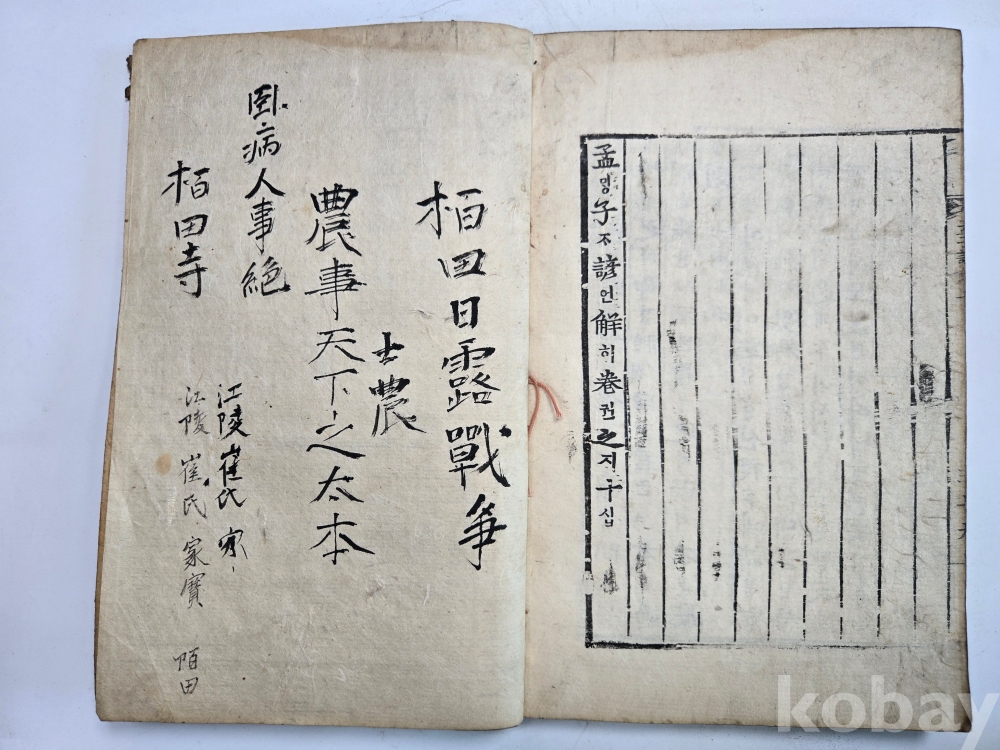 孟ᄆᆡᆼ子ᄌᆞ諺언解ᄒᆡ卷권之지十십
栢田日露戰爭
士農
農事天下之太本
臥病人事絶
江陵崔氏家
栢田寺
江陵崔氏家寶
栢田
kobay